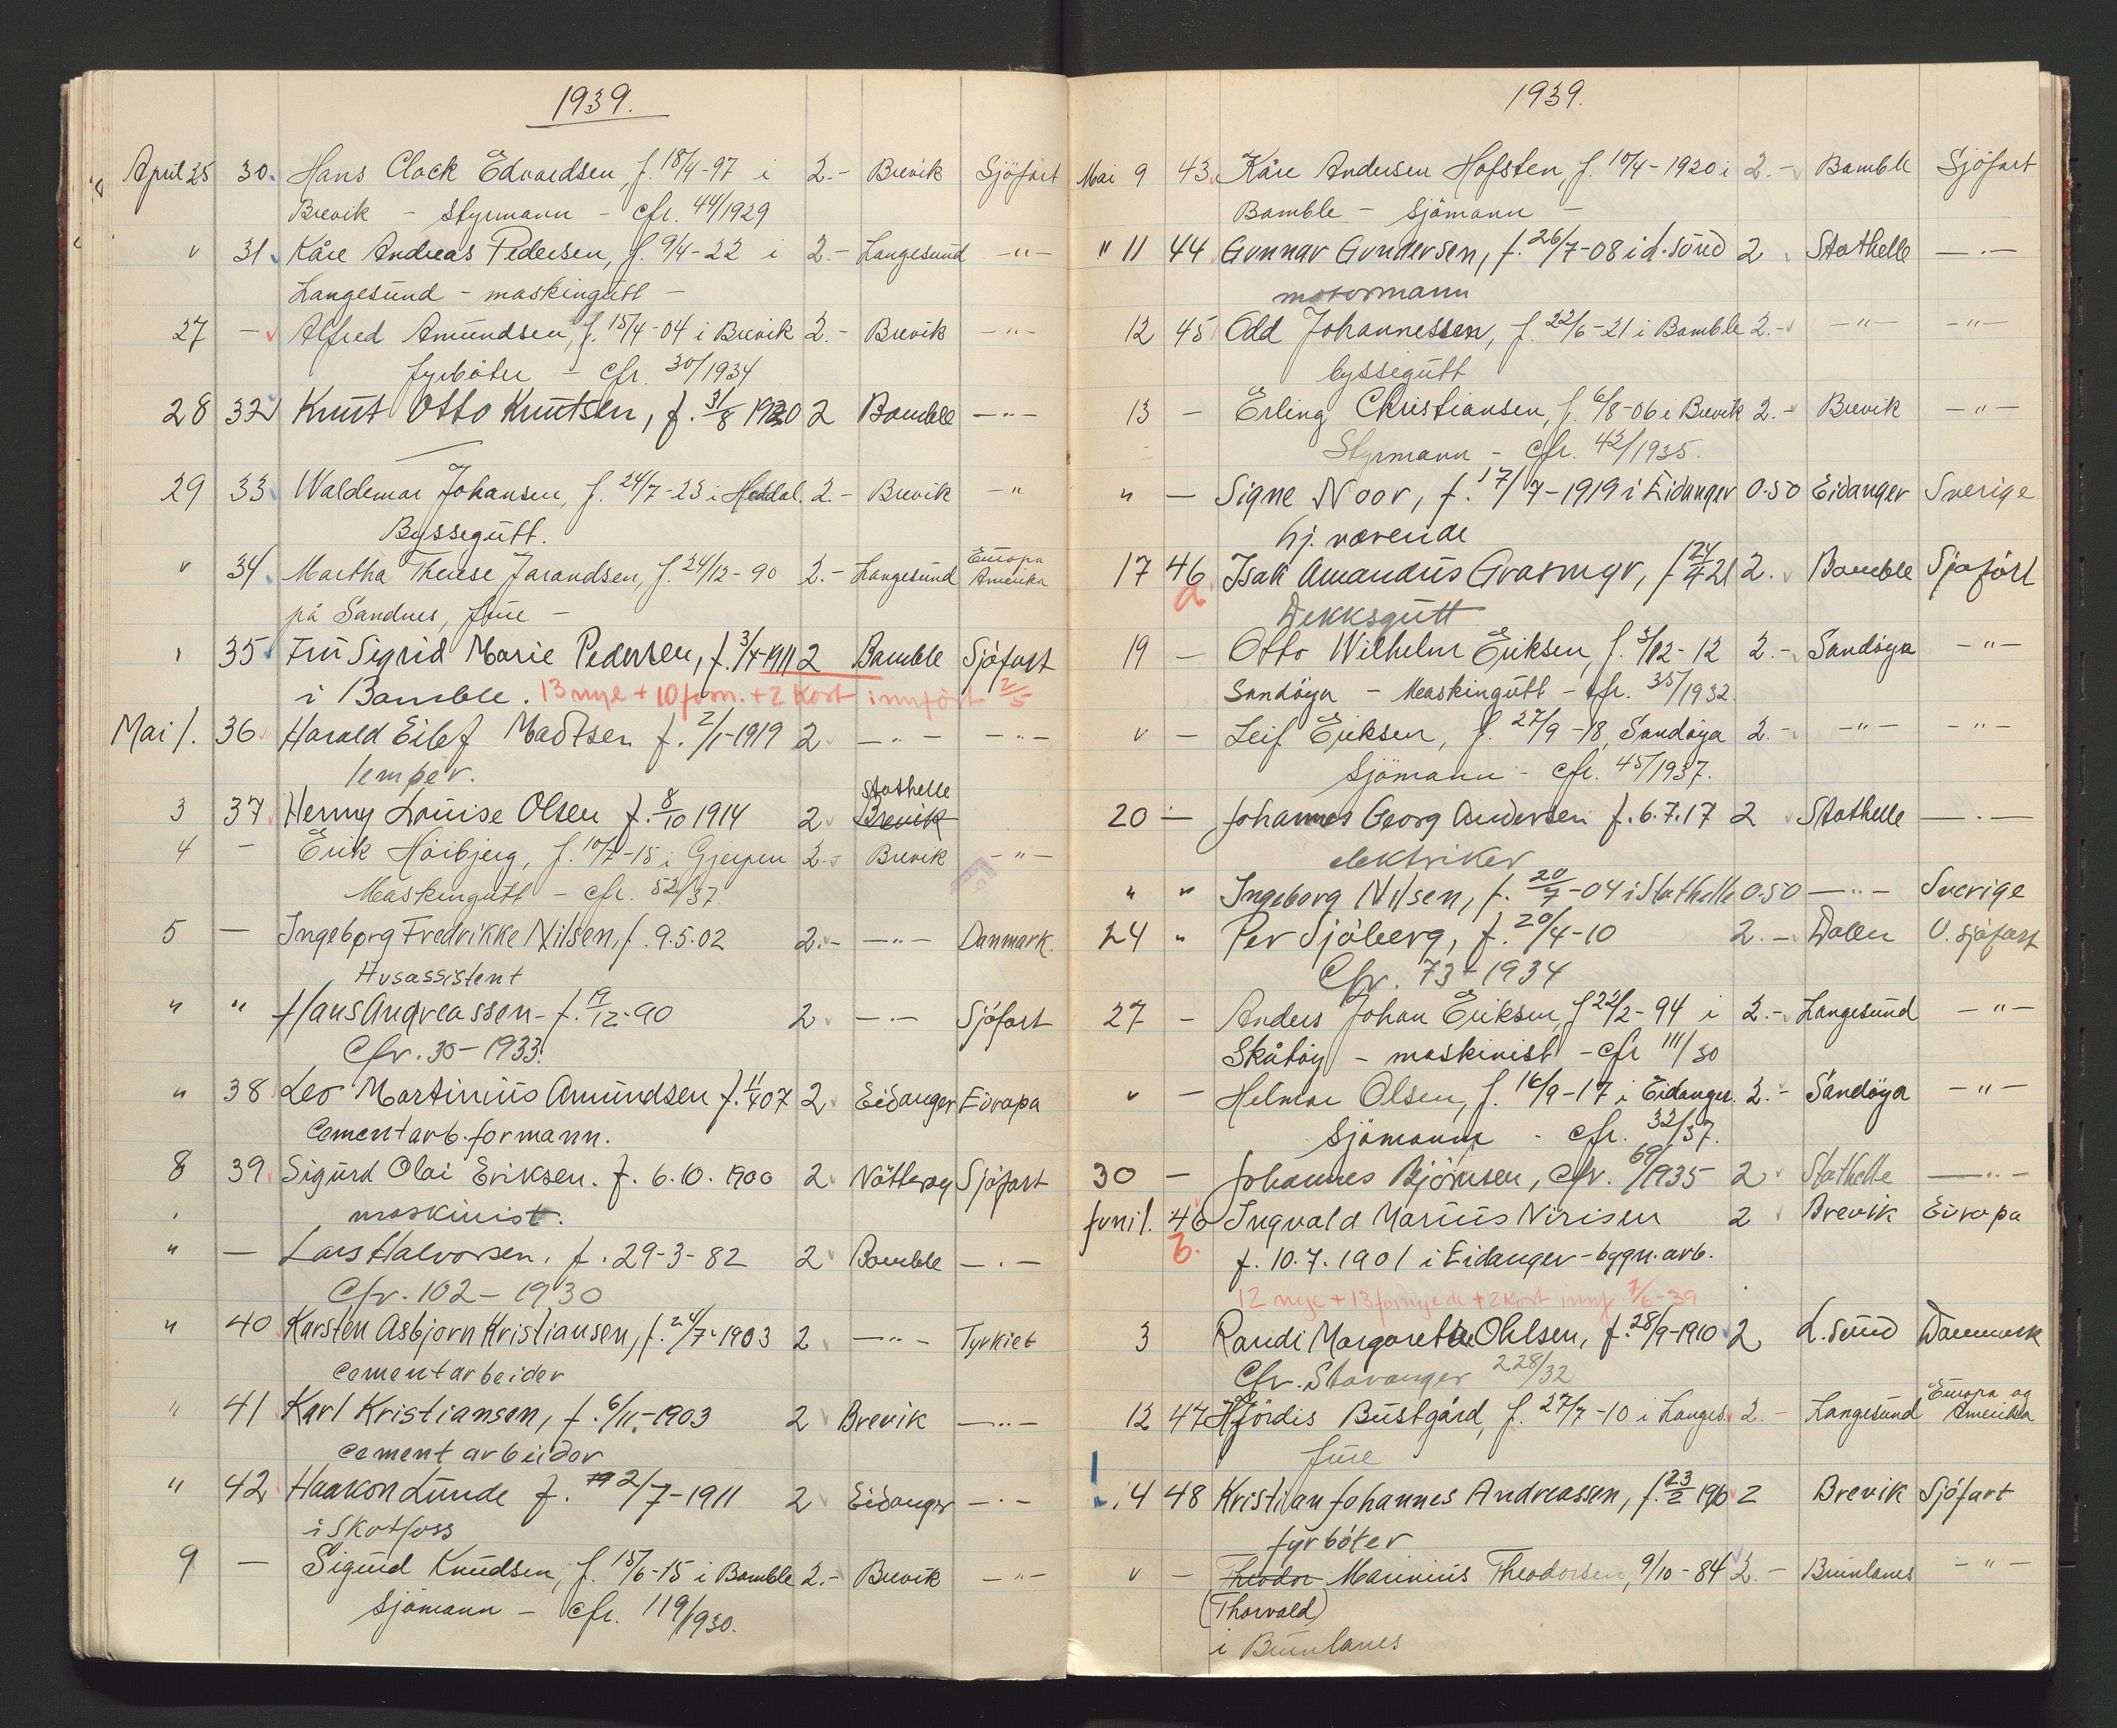 1939.
April 25 30. Hans Clack Edvardsen, f. 18/4-97 i 2.- Brevik Sjöfart
Brevik - Styrmann - cfr. 44/1929
" 31. Kåre Andreas Pedersen, f. 9/4-22 i 2.- Langesund -"-
Langesund - maskingutt -
27 - Alfred Amundsen, f. 15/4-04 i Brevik 2.- Brevik -"-
fyrböter - cfr. 30/1934
28 32 Knut Otto Knutsen, f. 31/8 1920 2 Bamble -"-
29 33. Waldemar Johansen, f. 24/7-23 i Heddal. 2.- Brevik -"
Byssegutt.
" 34. Martha Therese Jarandsen, f. 24/12-90 2.- Langesund Europa Amerika
på Sandnes, frue -
" 35. Fru Sigrid Marie Pedersen, f. 3/4-1911 2 Bamble Sjöfart
i Bamble. 13 nye + 10 forn. + 2 Kort innført 2/5
Mai 1. 36 Harald Eilef Madtsen f. 2/1-1919 2 -"- -"-
lemper.
Stathelle
3 37 Henny Louise Olsen f. 8/10 1914 2 Brevik
4 - Erik Höibjerg, f. 10/7-15 i Gjerpen 2.- Brevik -"-
Maskingutt - cfr. 52/37.
5 - Ingeborg Fredrikke Nilsen, f. 9.5.02 2.- -"- Danmark.
Husassistent
" " Hans Andreassen - f. 19/12-90 2 -"- Sjöfart
Cfr. 30-1933.
" 38 Leo Martinius Amundsen f. 11/4 07 2 Eidanger Europa
Cementarb. formann.
8 39 Sigurd Olai Eriksen. f. 6.10.1900 2 Nötteröy Sjöfart
maskinist.
" - Lars Halvorsen. f. 29-3-82 2 Bamble -.-
Cfr. 102-1930
" 40 Karsten Asbjørn Kristiansen, f. 24/7-1903 2 -"- Tyrkiet
cementarbeider
" 41 Karl Kristiansen, f. 6/11-1903 2 Brevik -"-
cementarbeider
" 42 Haakon Lunde f. 2/7-1911 2 Eidanger -.-
i Skotfoss
9 - Sigurd Knudsen, f. 15/6-15 i Bamble 2.- Brevik -"-
Sjömann - cfr. 119/1930.
1939.
Mai 9 43. Kåre Andersen Hofsten, f. 10/4-1920 i 2.- Bamble Sjöfart
Bamble - Sjömann -
" 11 44 Gunnar Gundersen, f. 26/7-08 i L.sund 2 Stathelle -.-
motormann
12 45 Odd Johannessen, f. 22/6-21 i Bamble 2.- -"- -"-
byssegutt
13 - Erling Christiansen, f. 6/8-06 i Brevik 2.- Brevik -"-
Styrmann - cfr. 42/1935.
" - Signe Noor, f. 17/7-1919 i Eidanger 0.50 Eidanger Sverige
hj. værende
17 46 a. Isak Amandus Grasmyr, f. 24/4 21 2. Bamble Sjøfart
Dekksgutt
19 - Otto Wilhelm Eriksen, f. 3/12-12 2.- Sandöya -"-
Sandöya - Maskingutt - cfr. 35/1932.
" - Leif Eriksen, f. 27/9-18, Sandöya 2.- -"- -"-
Sjömann - cfr. 45/1937.
20 - Johannes Georg Andersen f. 6.7.17 2 Stathelle -.-
elektriker
" " Ingeborg Nilsen, f. 20/7-04 i Stathelle 0.50 -"- Sverige
24 " Per Sjöberg, f. 20/4-10 2.- Dalen U. sjøfart
Cfr. 73-1934
27 - Anders Johan Eriksen, f. 22/2-94 i 2.- Langesund -"-
Skåtöy - maskinist - cfr 111/30
" - Helmar Olsen, f. 16/9-17 i Eidanger. 2.- Sandöya -"-
Sjömann - cfr. 32/37.
30 - Johannes Björnsen, cfr. 69/1935 2 Stathelle -"-
Juni 1. 46 b. Ingvald Marius Nirisen 2 Brevik Europa
f. 10.7.1901 i Eidanger - bygn.arb.
12 nye + 13 fornyede + 2 Kort innf. 7/6-39
3 Randi Margarethe Ohlsen, f. 28/9-1910 2 L.sund Danmark
Cfr. Stavanger 228/32
12 47 Hjördis Bustgård, f. 27/7-10 i Langes. 2.- Langesund Europa og Amerika
frue
14 48 Kristian Johannes Andreassen, f. 23/2 1910 2 Brevik Sjöfart
fyrböter
" - Theodor Marinius Theodorsen, 9/10-84 2.- Brunlanes -"-
(Thorvald)
i Brunlanes